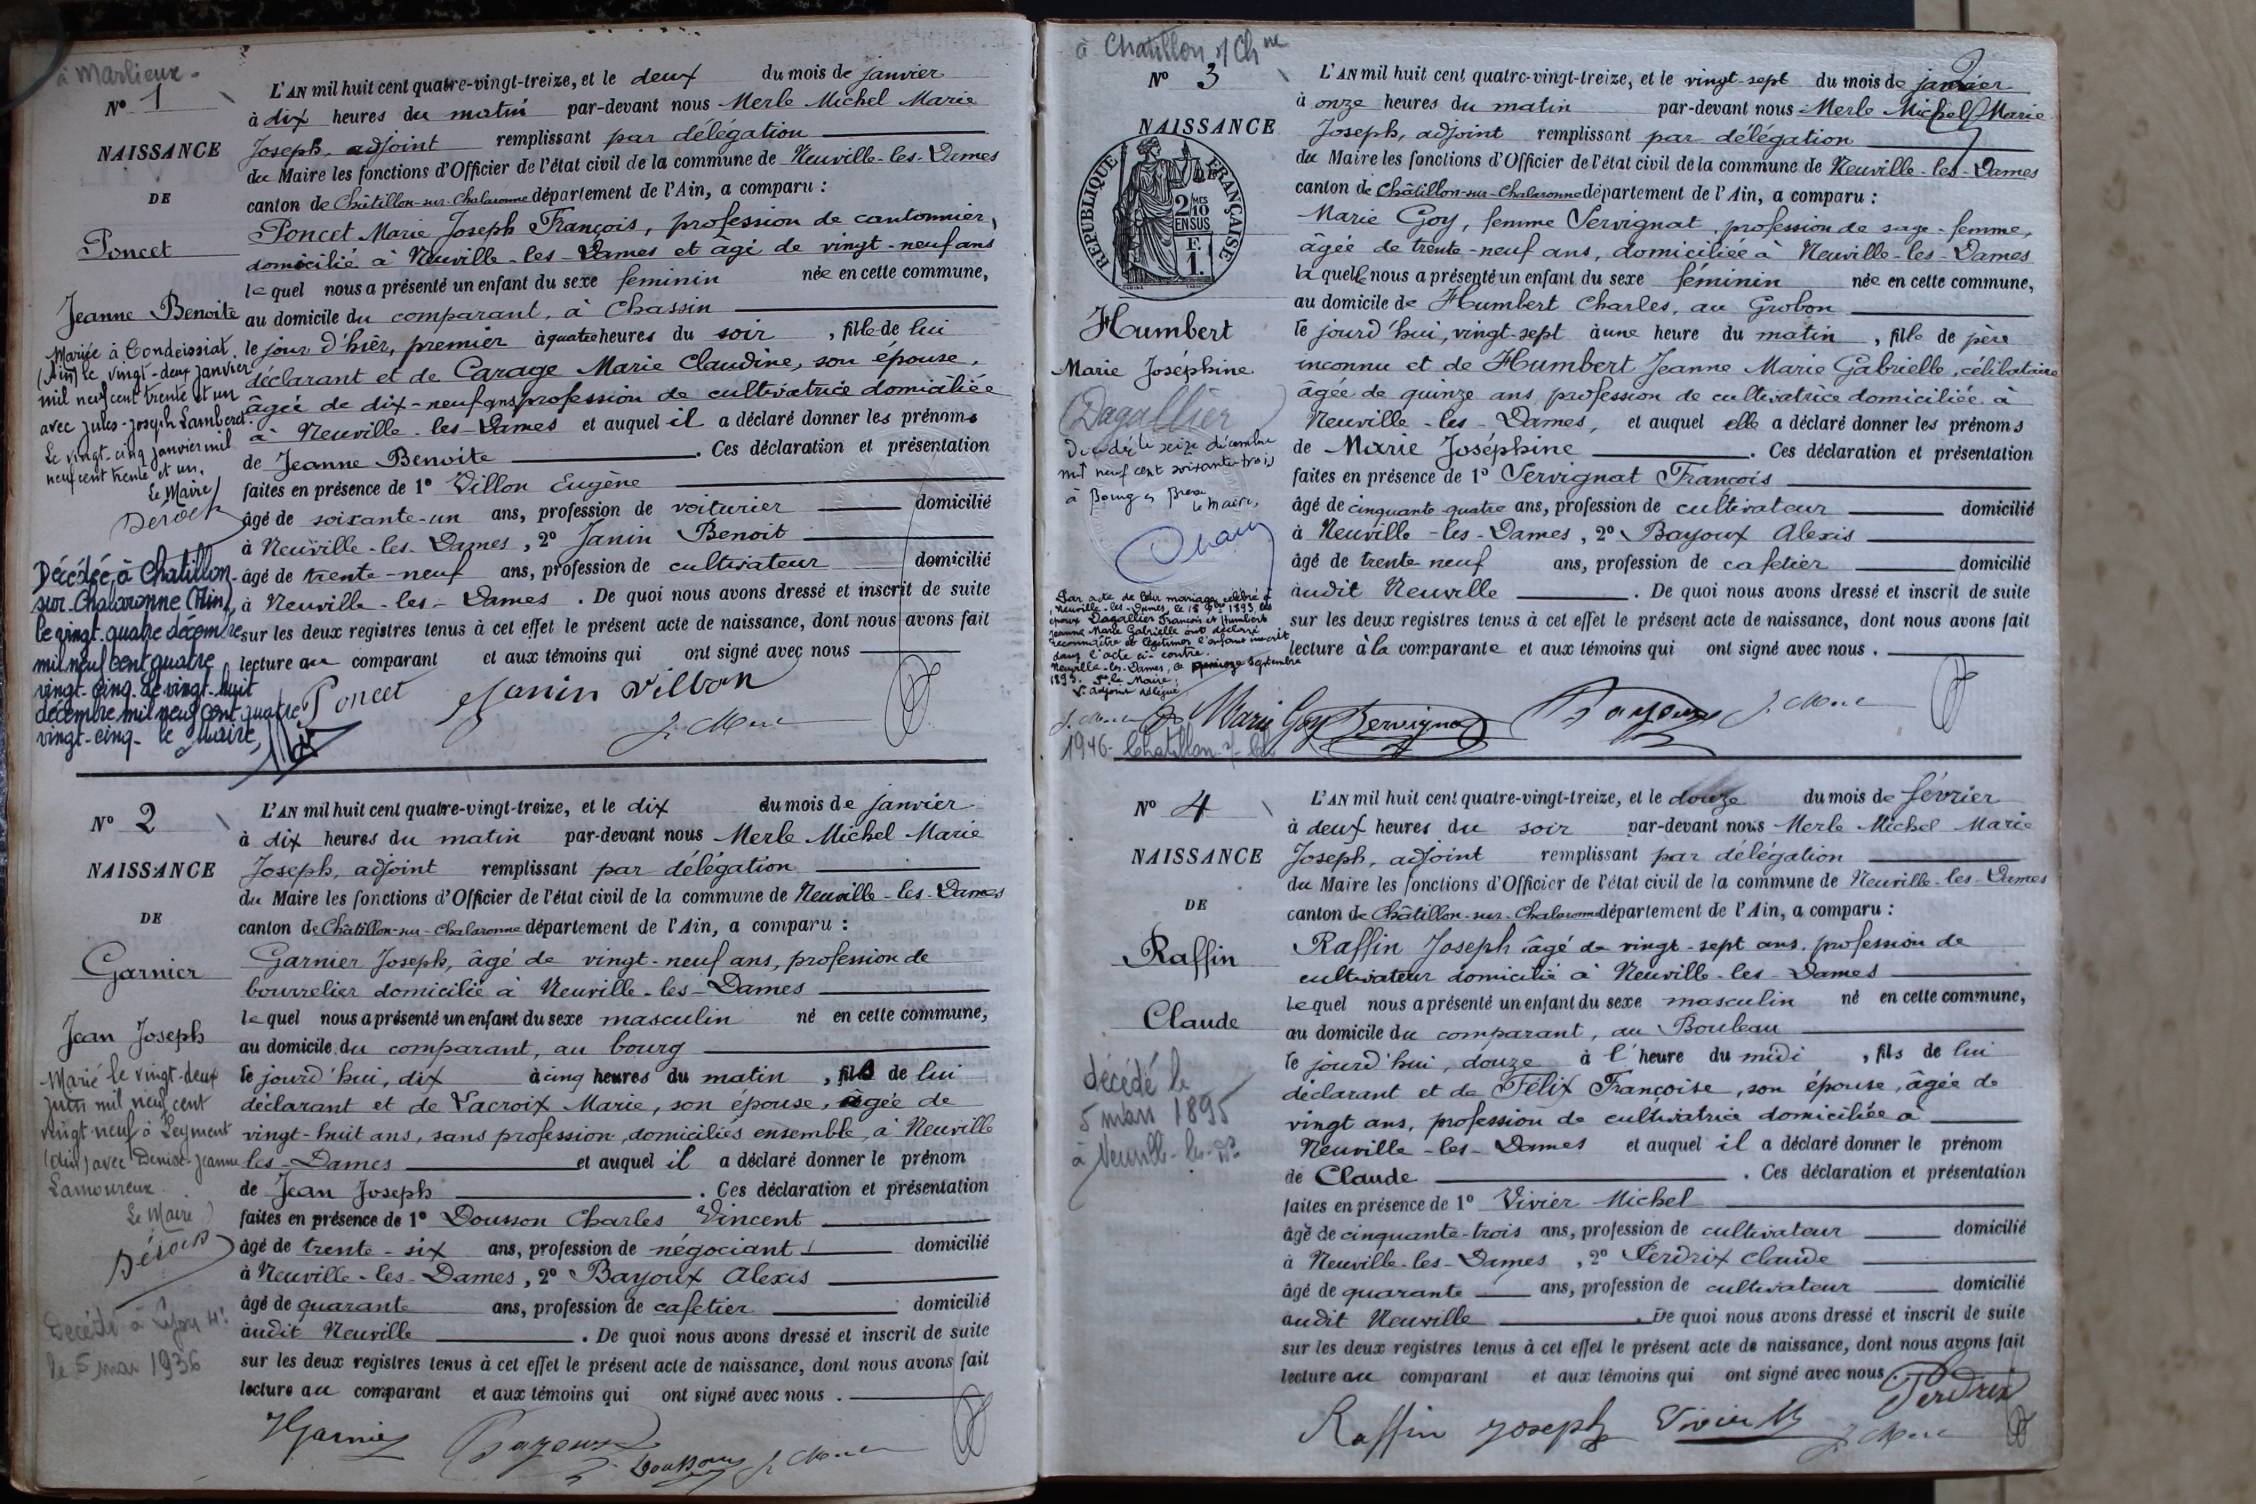 à Marlieux.
N° 1
NAISSANCE
DE
Poncet
Jeanne Benoite
Mariée à Condeissiat
(Ain) le vingt-deux janvier
mil neuf cent trente et un
avec Jules-Joseph Lambert
Le vingt-cinq janvier mil
neuf cent trente et un.
Le Maire
Décédée à Chatillon-
sur-Chalaronne (Ain)
le vingt-quatre décembre
mil neuf cent quatre
vingt-cinq. Le vingt-huit
décembre mil neuf cent quatre
vingt-cinq. le Maire,
L'AN mil huit cent quatre-vingt-treize, et le deux du mois de janvier
à dix heures du matin par-devant nous Merle Michel Marie
Joseph, adjoint remplissant par délégation
du Maire les fonctions d'Officier de l'état civil de la commune de Neuville-les-Dames
canton de Châtillon-sur-Chalaronne département de l'Ain, a comparu :
Poncet Marie Joseph François, profession de cantonnier,
domicilié à Neuville-les-Dames et âgé de vingt-neuf ans
lequel nous a présenté un enfant du sexe féminin née en cette commune,
au domicile du comparant, à Chassin
le jour d'hier, premier à quatre heures du soir, fille de lui
déclarant et de Carage Marie Claudine, son épouse,
âgée de dix-neuf ans profession de cultivatrice domiciliée
à Neuville-les-Dames et auquel il a déclaré donner les prénoms
de Jeanne Benoite. Ces déclaration et présentation
faites en présence de 1° Villon Eugène
âgé de soixante-un ans, profession de voiturier domicilié
à Neuville-les-Dames, 2° Janin Benoit
âgé de trente-neuf ans, profession de cultivateur domicilié
à Neuville-les-Dames. De quoi nous avons dressé et inscrit de suite
sur les deux registres tenus à cet effet le présent acte de naissance, dont nous avons fait
lecture au comparant et aux témoins qui ont signé avec nous
Poncet Janin Villon
J. Merle
N° 2
NAISSANCE
DE
Garnier
Jean Joseph
Marié le vingt-deux
juin mil neuf cent
vingt-neuf à Leyment
(Ain) avec Denise-Jeanne
Lamoureux
Le Maire
Décédé à Lyon 4e
le 5 mai 1936
L'AN mil huit cent quatre-vingt-treize, et le dix du mois de janvier
à dix heures du matin par-devant nous Merle Michel Marie
Joseph, adjoint remplissant par délégation
du Maire les fonctions d'Officier de l'état civil de la commune de Neuville-les-Dames
canton de Châtillon-sur-Chalaronne département de l'Ain, a comparu :
Garnier Joseph, âgé de vingt-neuf ans, profession de
bourrelier domicilié à Neuville-les-Dames
lequel nous a présenté un enfant du sexe masculin né en cette commune,
au domicile du comparant, au bourg
le jourd'hui, dix à cinq heures du matin, fils de lui
déclarant et de Lacroix Marie, son épouse, âgée de
vingt-huit ans, sans profession, domiciliés ensemble, à Neuville
les-Dames et auquel il a déclaré donner le prénom
de Jean Joseph. Ces déclaration et présentation
faites en présence de 1° Dousson Charles Vincent
âgé de trente-six ans, profession de négociant domicilié
à Neuville-les-Dames, 2° Bayoux Alexis
âgé de quarante ans, profession de cafetier domicilié
audit Neuville. De quoi nous avons dressé et inscrit de suite
sur les deux registres tenus à cet effet le présent acte de naissance, dont nous avons fait
lecture au comparant et aux témoins qui ont signé avec nous.
JGarnier Bayoux Dousson J. Merle
à Chatillon s/ Chne
N° 3
NAISSANCE
REPUBLIQUE FRANÇAISE
2 MES
10
EN SUS
F.
1.
Humbert
Marie Joséphine
(Dagallier)
Décédé le seize décembre
mil neuf cent soixante-trois
à Bourg en Bresse
Le Maire,
Par acte de leur mariage célébré à
Neuville-les-Dames, le 15 7bre 1893, les
époux Dagallier François et Humbert
Jeanne Marie Gabrielle ont déclaré
reconnaître et légitimer l'enfant inscrit
dans l'acte ci-contre.
Neuville-les-Dames, le quinze Septembre
1893. Pr le Maire:
L'adjoint délégué
J. Merle
1946- Chatillon-s/-Ch
L'AN mil huit cent quatre-vingt-treize, et le vingt-sept du mois de janvier
à onze heures du matin par-devant nous Merle Michel Marie
Joseph, adjoint remplissant par délégation
du Maire les fonctions d'Officier de l'état civil de la commune de Neuville-les-Dames
canton de Châtillon-sur-Chalaronne département de l'Ain, a comparu :
Marie Goy, femme Servignat, profession de sage-femme,
âgée de trente-neuf ans, domiciliée à Neuville-les-Dames
laquelle nous a présenté un enfant du sexe féminin née en cette commune,
au domicile de Humbert Charles, au Grobon
le jourd'hui, vingt-sept à une heure du matin, fille de père
inconnu et de Humbert Jeanne Marie Gabrielle, célibataire
âgée de quinze ans, profession de cultivatrice domiciliée à
Neuville-les-Dames, et auquel elle a déclaré donner les prénoms
de Marie Joséphine. Ces déclaration et présentation
faites en présence de 1° Servignat François
âgé de cinquante quatre ans, profession de cultivateur domicilié
à Neuville-les-Dames, 2° Bayoux Alexis
âgé de trente neuf ans, profession de cafetier domicilié
audit Neuville. De quoi nous avons dressé et inscrit de suite
sur les deux registres tenus à cet effet le présent acte de naissance, dont nous avons fait
lecture à la comparante et aux témoins qui ont signé avec nous.
Marie Goy Servignat Bayoux J. Merle
N° 4
NAISSANCE
DE
Raffin
Claude
décédé le
5 mars 1895
à Neuville-les-Des
L'AN mil huit cent quatre-vingt-treize, et le douze du mois de février
à deux heures du soir par-devant nous Merle Michel Marie
Joseph, adjoint remplissant par délégation
du Maire les fonctions d'Officier de l'état civil de la commune de Neuville-les-Dames
canton de Châtillon-sur-Chalaronne département de l'Ain, a comparu :
Raffin Joseph âgé de vingt-sept ans, profession de
cultivateur domicilié à Neuville-les-Dames
lequel nous a présenté un enfant du sexe masculin né en cette commune,
au domicile du comparant, au Bouleau
le jourd'hui, douze à l'heure du midi, fils de lui
déclarant et de Félix Françoise, son épouse, âgée de
vingt ans, profession de cultivatrice domiciliée à
Neuville-les-Dames et auquel il a déclaré donner le prénom
de Claude. Ces déclaration et présentation
faites en présence de 1° Vivier Michel
âgé de cinquante-trois ans, profession de cultivateur domicilié
à Neuville-les-Dames, 2° Perdrix Claude
âgé de quarante ans, profession de cultivateur domicilié
audit Neuville. De quoi nous avons dressé et inscrit de suite
sur les deux registres tenus à cet effet le présent acte de naissance, dont nous avons fait
lecture au comparant et aux témoins qui ont signé avec nous.
Perdrix
Raffin Joseph Vivier M J. Merle